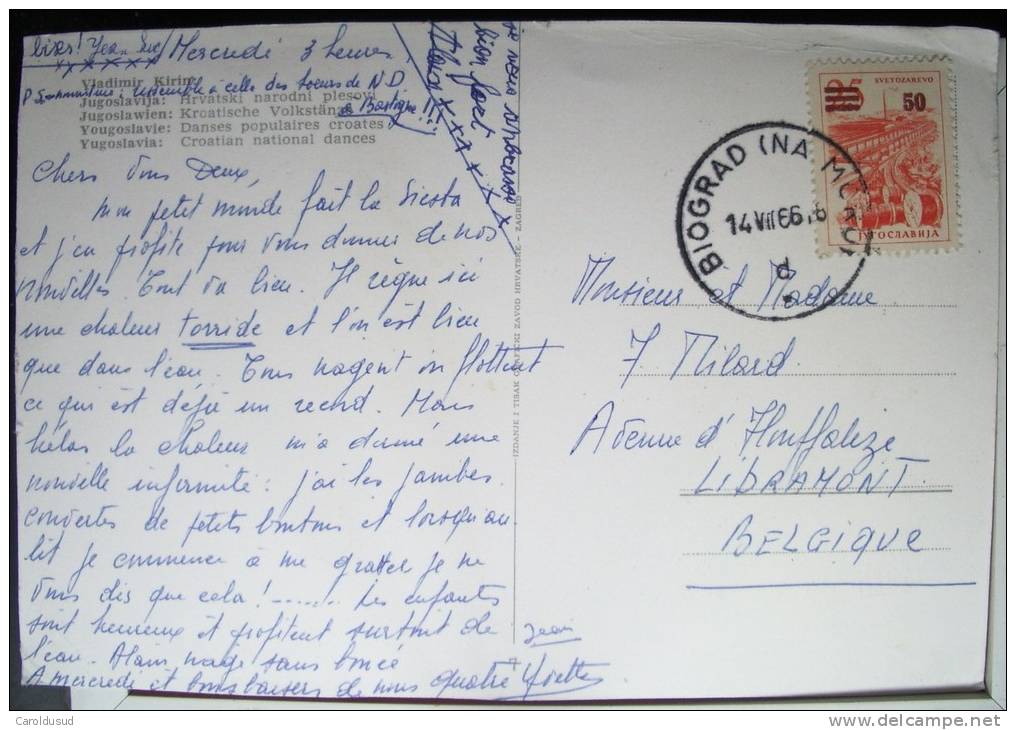 bises! Jean Luc
Mercredi 3 heures
Vladimir Kirin:
P.S. ressemble à celle des soeurs de N.D.
de Bastogne!!
Jugoslavija: Hrvatski narodni plesovi
Jugoslawien: Kroatische Volkstänze
Yougoslavie: Danses populaires croates
Yugoslavia: Croatian national dances
bien fort
Alain !!!
Chers Vous Deux,
mon petit monde fait la Siesta
et j'en profite pour vous donner de nos
nouvelles. Tout va bien. Il règne ici
une chaleur torride et l'on est bien
que dans l'eau. Tous nagent ou flottent
ce qui est déjà un record. Mais
hélas la chaleur m'a donné une
nouvelle infirmité: j'ai les jambes
couvertes de petits boutons et lorsqu'au
lit je commence à me gratter je ne
vous dis que cela!....... Les enfants
sont heureux et profitent surtout de
l'eau. Alain nage sans bouée
A mercredi et bons baisers de nous quatre
Jean
Yvette
IZDANJE I TISAK GRAFIČKI ZAVOD HRVATSKE - ZAGREB
SVETOZAREVO
25
50
JУГОСЛАВИЈА
BIOGRAD (NA MORU)
14 VII 66 18
Monsieur et Madame
J Milard
Avenue d'Houffalize
LIBRAMONT
BELGIQUE
Caroldusud
delcampe.net